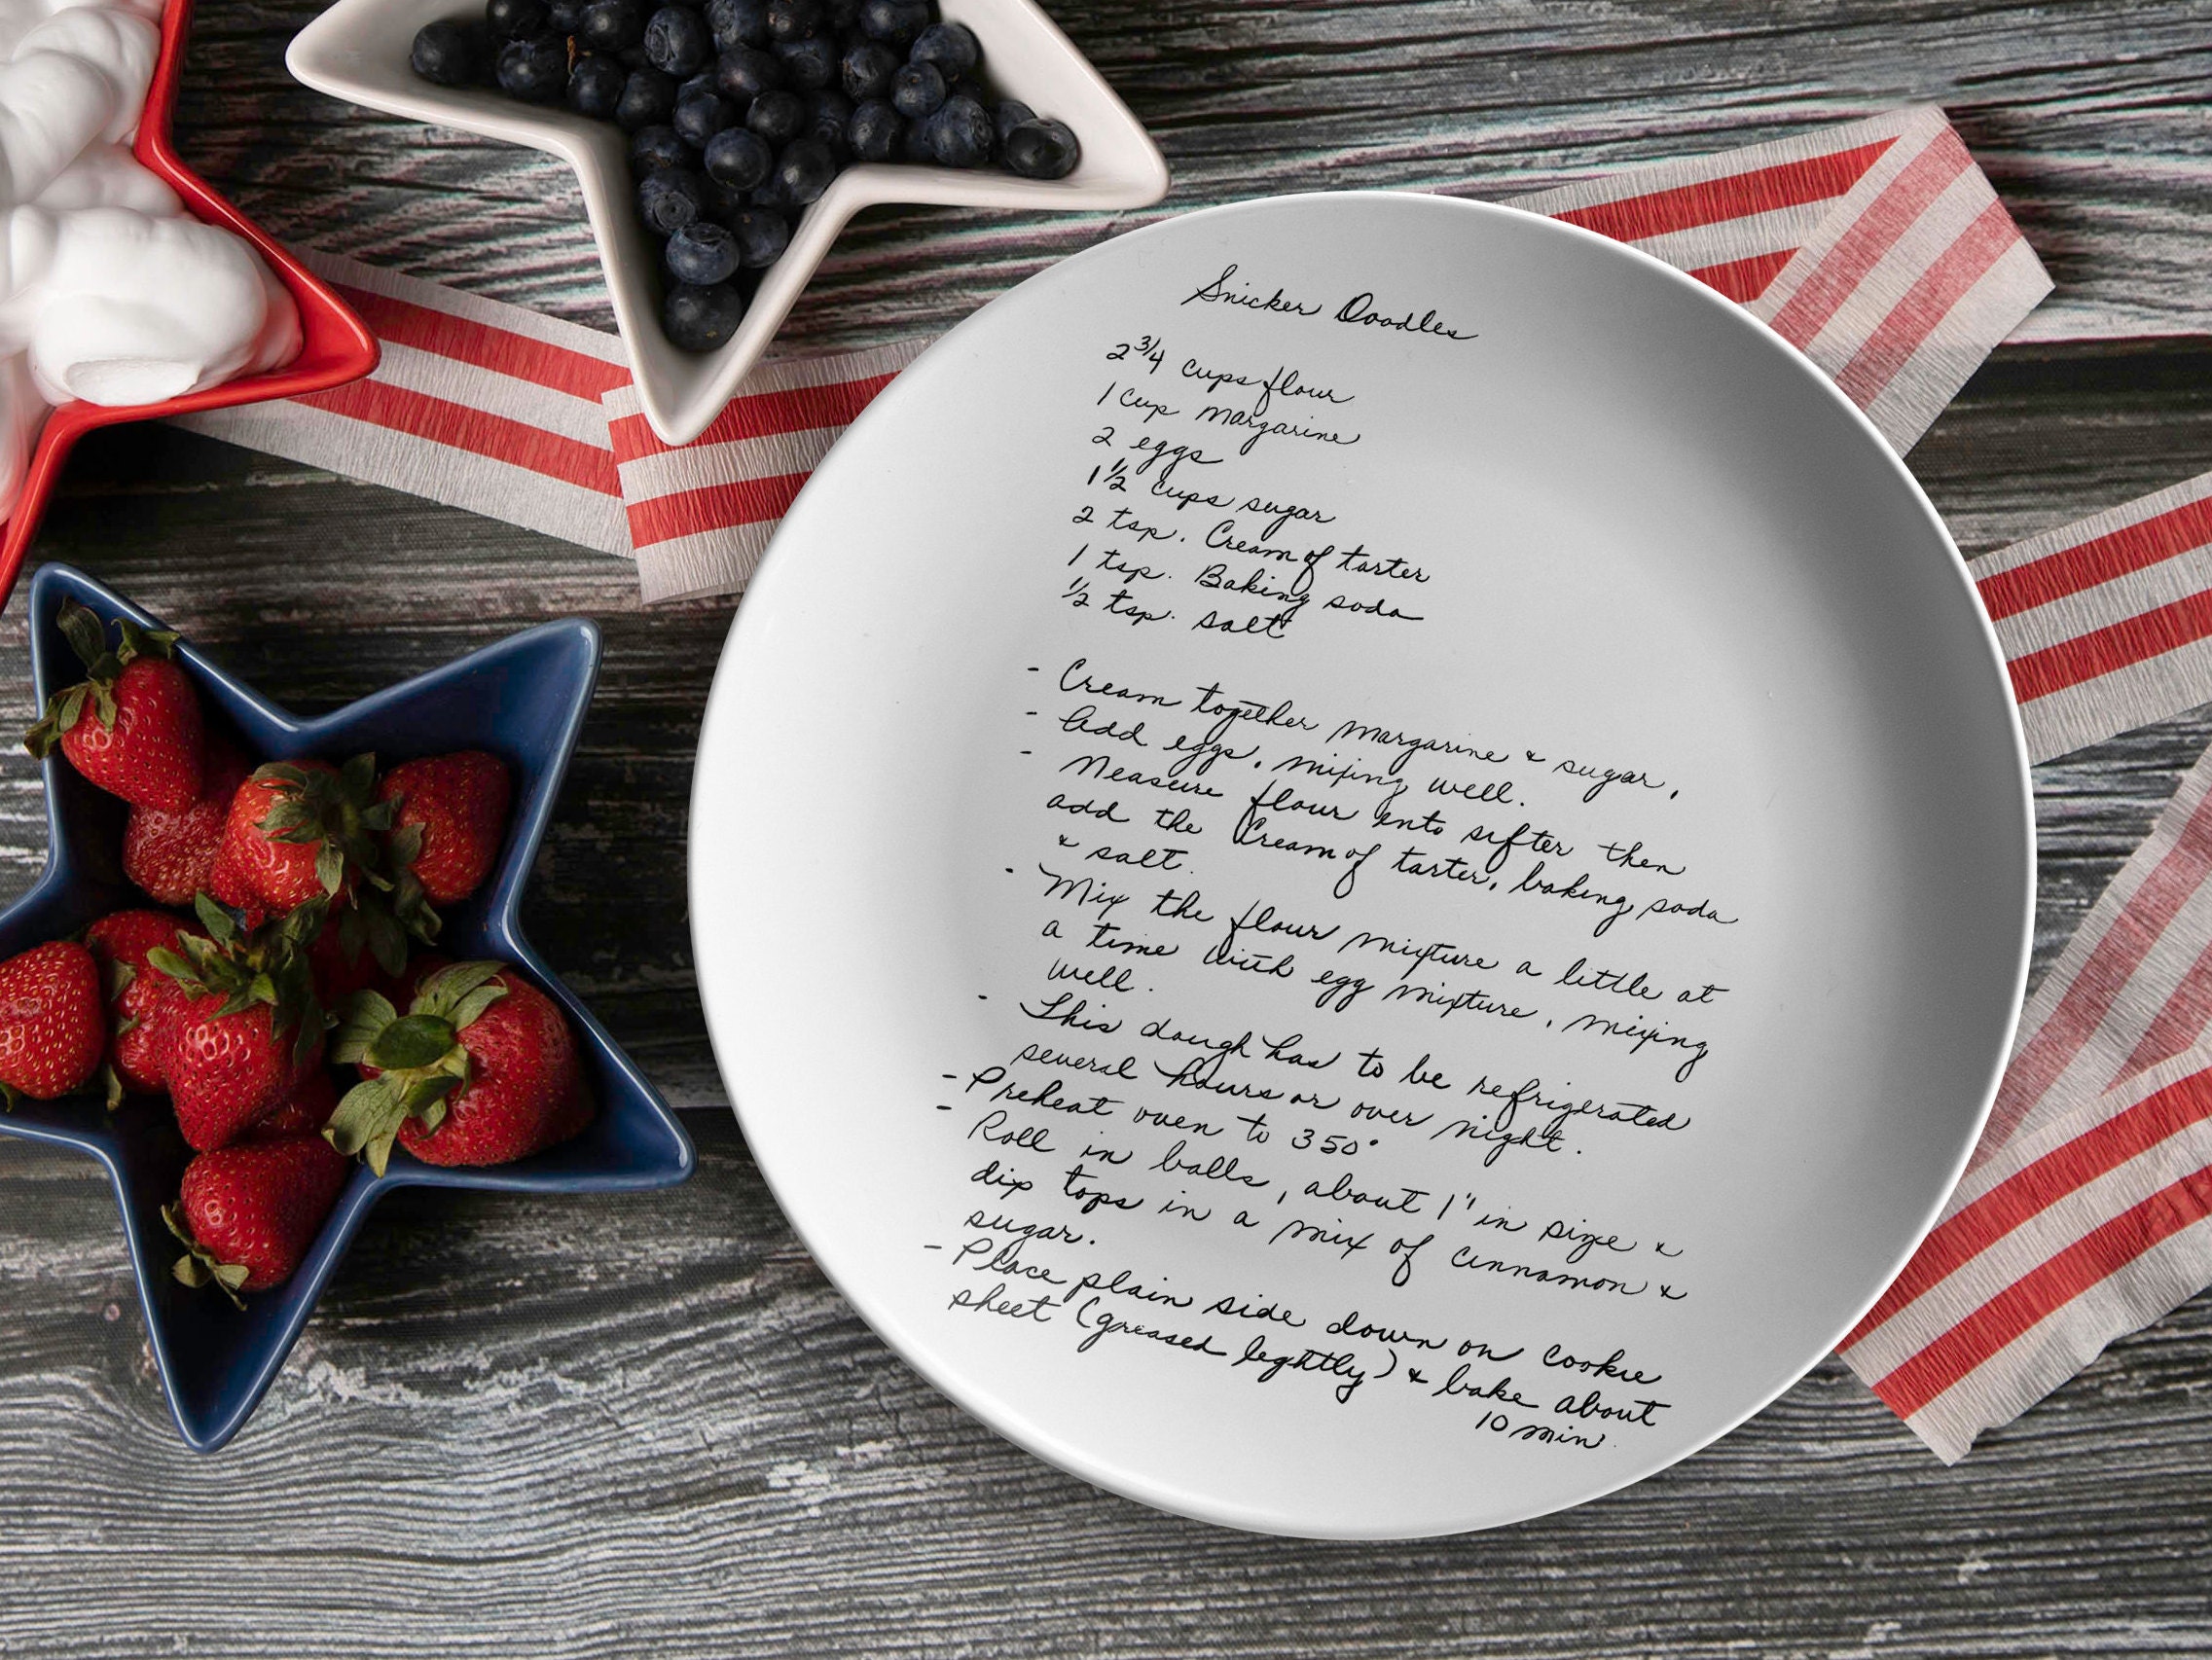 Snicker Doodles
2 3/4 cups flour
1 cup margarine
2 eggs
1 1/2 cups sugar
2 tsp. Cream of tarter
1 tsp. Baking soda
1/2 tsp. salt
- Cream together margarine & sugar.
- Add eggs, mixing well.
- Measure flour into sifter then
add the Cream of tarter, baking soda
& salt.
- Mix the flour mixture a little at
a time with egg mixture, mixing
well.
- This dough has to be refrigerated
several hours or over night.
- Preheat oven to 350°
- Roll in balls, about 1" in size &
dip tops in a mix of cinnamon &
sugar.
- Place plain side down on cookie
sheet (greased lightly) & bake about
10 min.